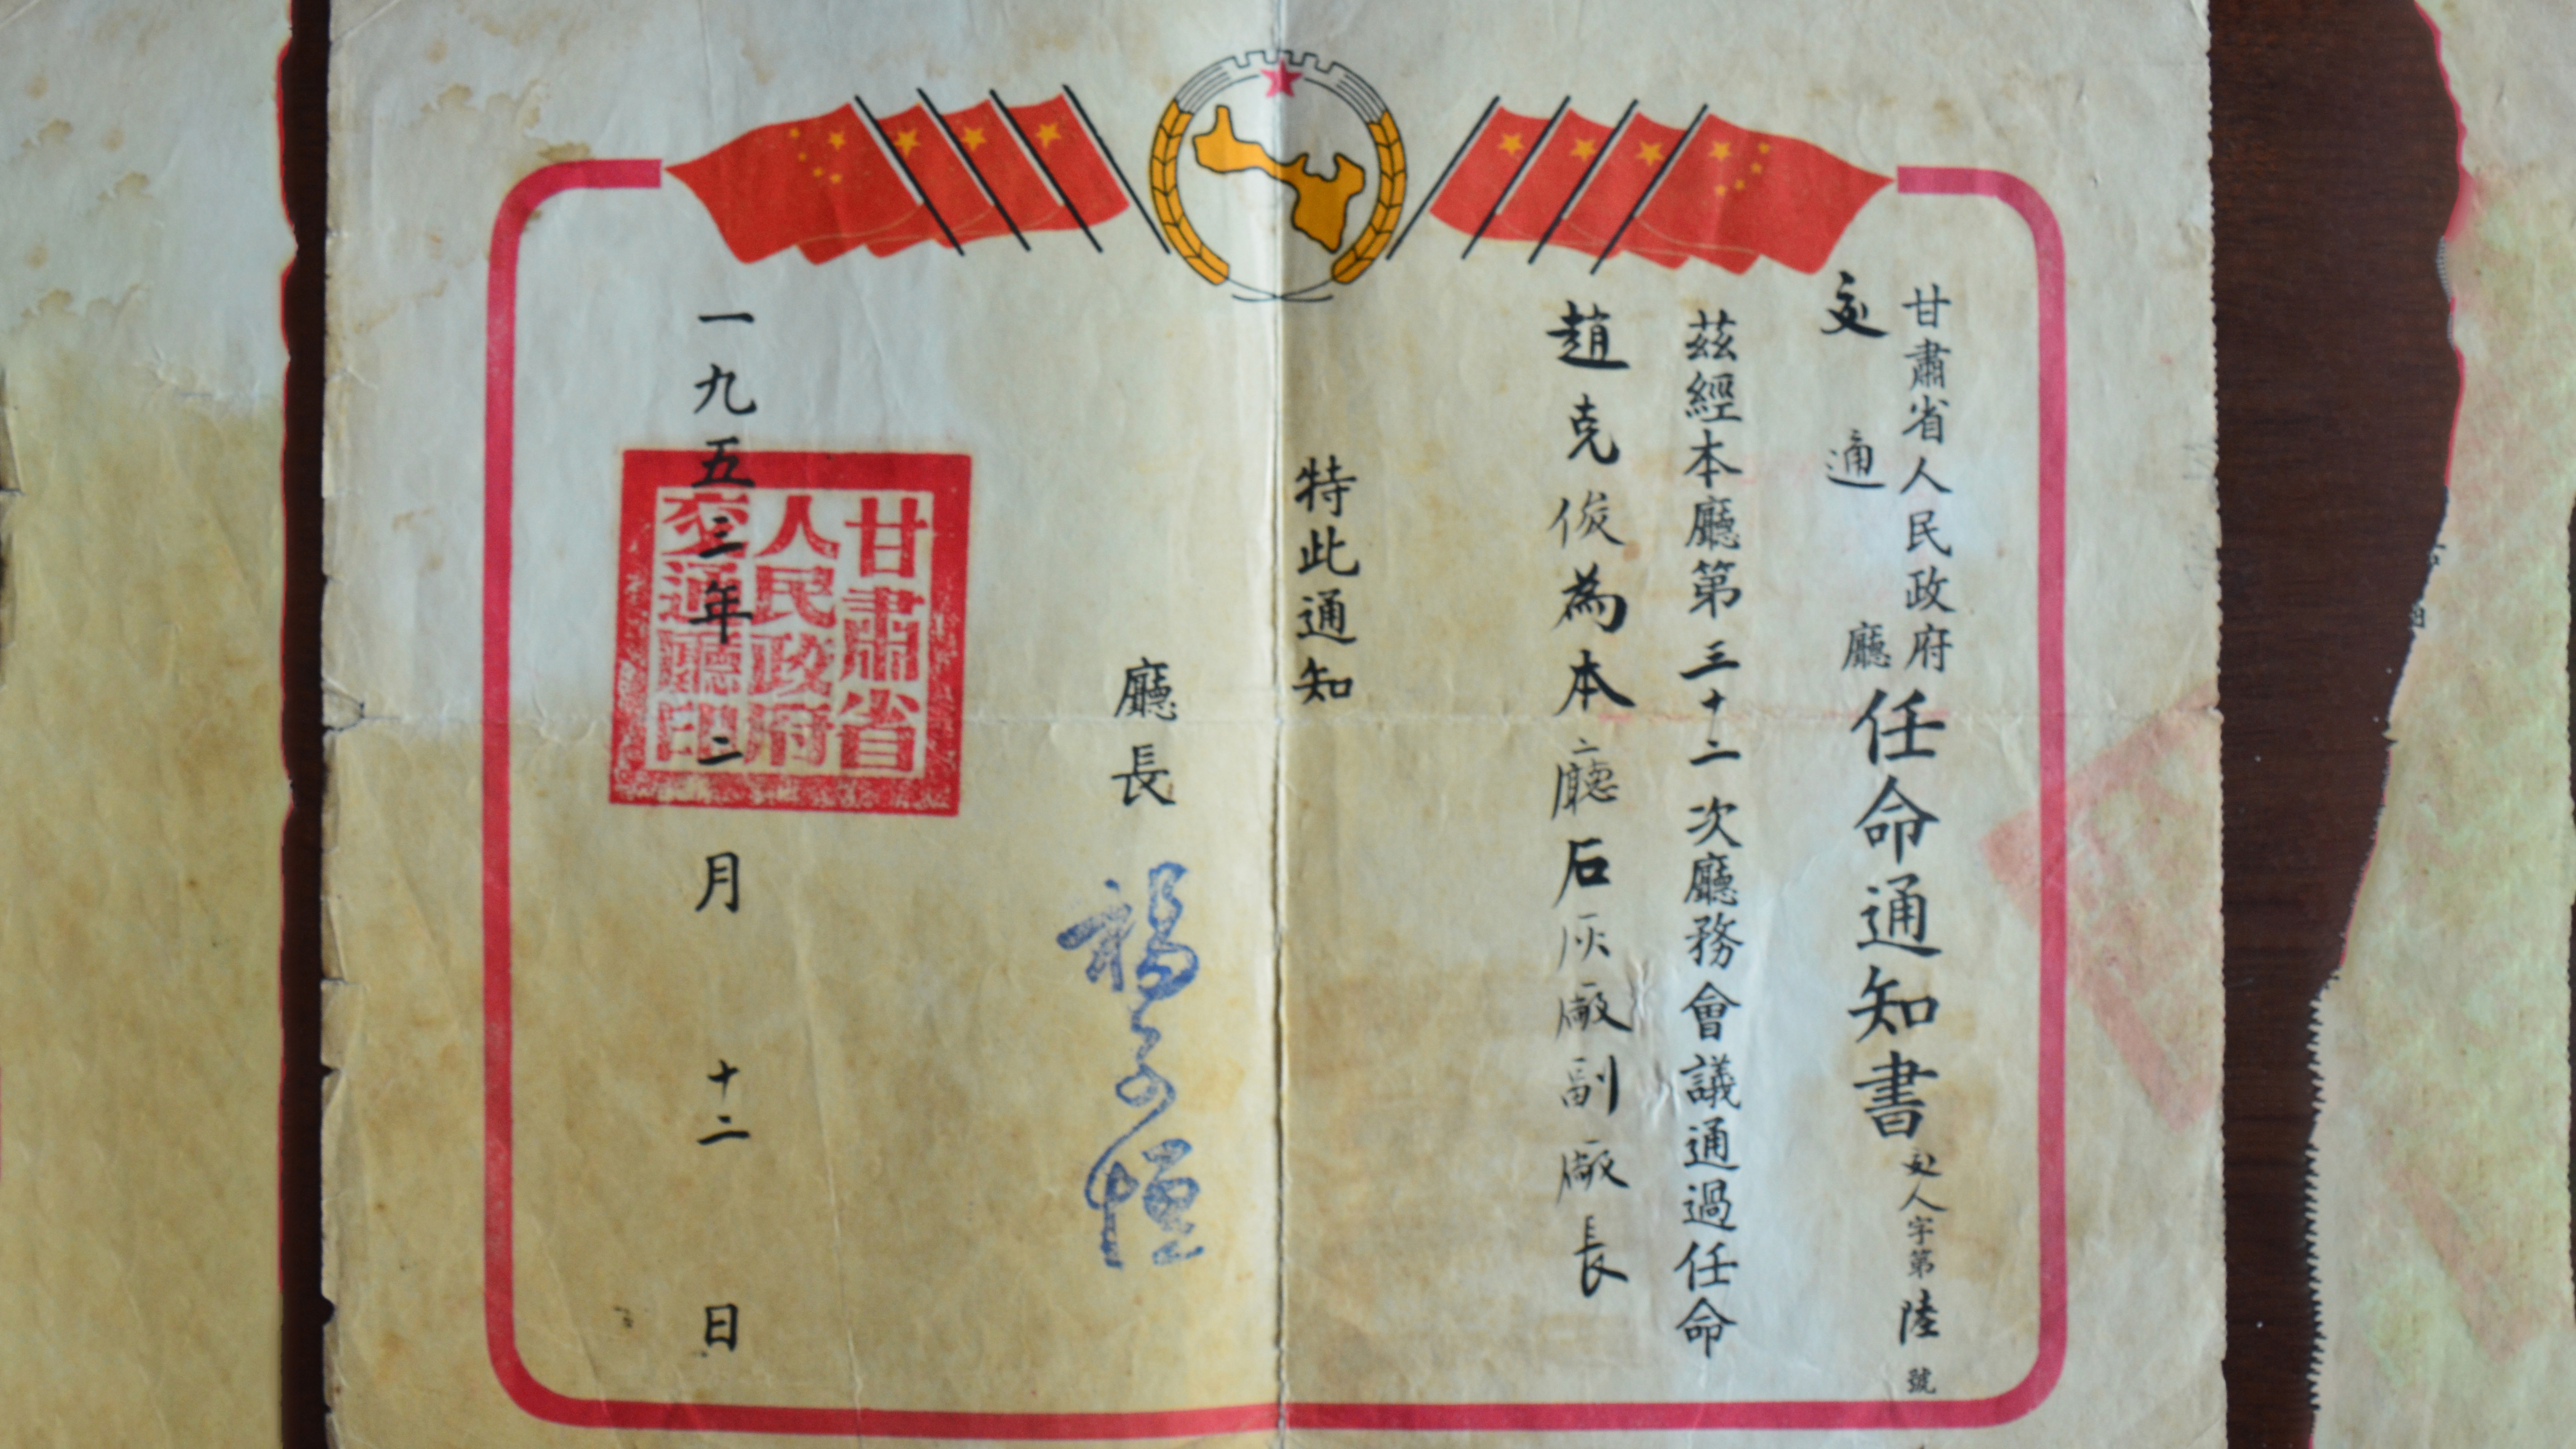 甘肅省人民政府
交通廳
任命通知書
交人字第陸號
茲經本廳第三十二次廳務會議通過任命
趙克俊為本廳石灰廠副廠長
特此通知
廳長
一九五三年二月十二日
甘肅省
人民政府
交通廳印